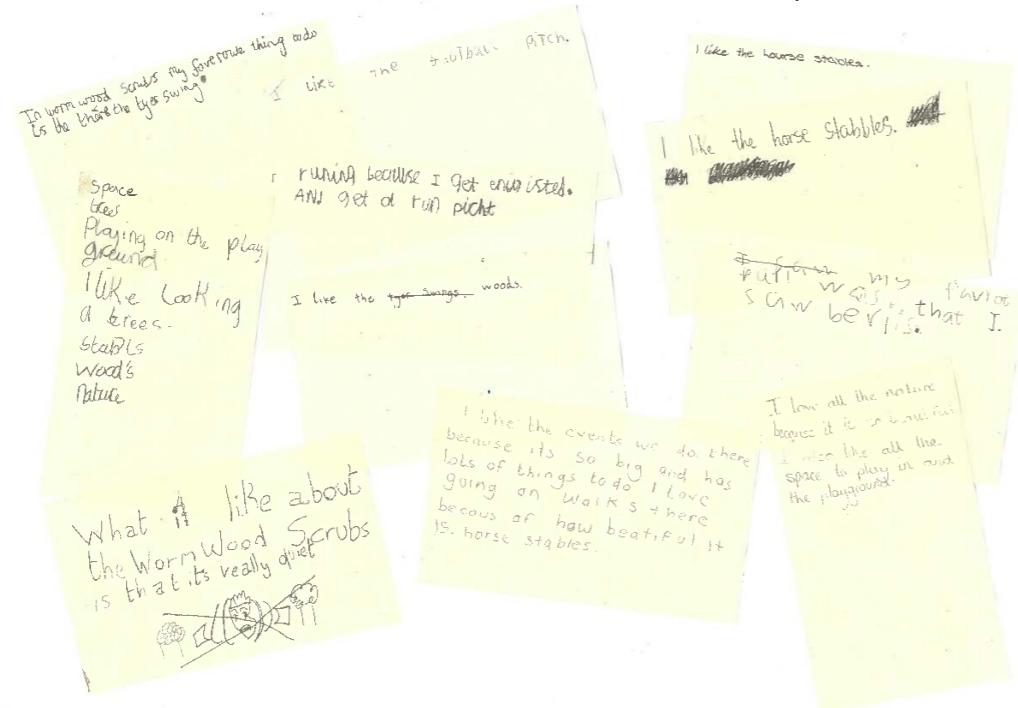 In worm wood scrubs my faveroute thing todo
is the the tyer swing
space
trees
Playing on the play
ground
I like looking
a trees.
stabls
Wood's
nature
What I like about
the Worm Wood Scrubs
is that its really quiet
I like the football pitch.
runing because I get
AND get a run picht
I like the tyer swings. woods.
I like the events we do there
because its so big and has
lots of things to do I love
going on walks there
becaus of how beatiful it
is. horse stables.
I like the hourse stables.
I like the horse stabbles.
my
was that I
saw
I love all the nature
because it is so
I also like all the
space to play in and
the playground.